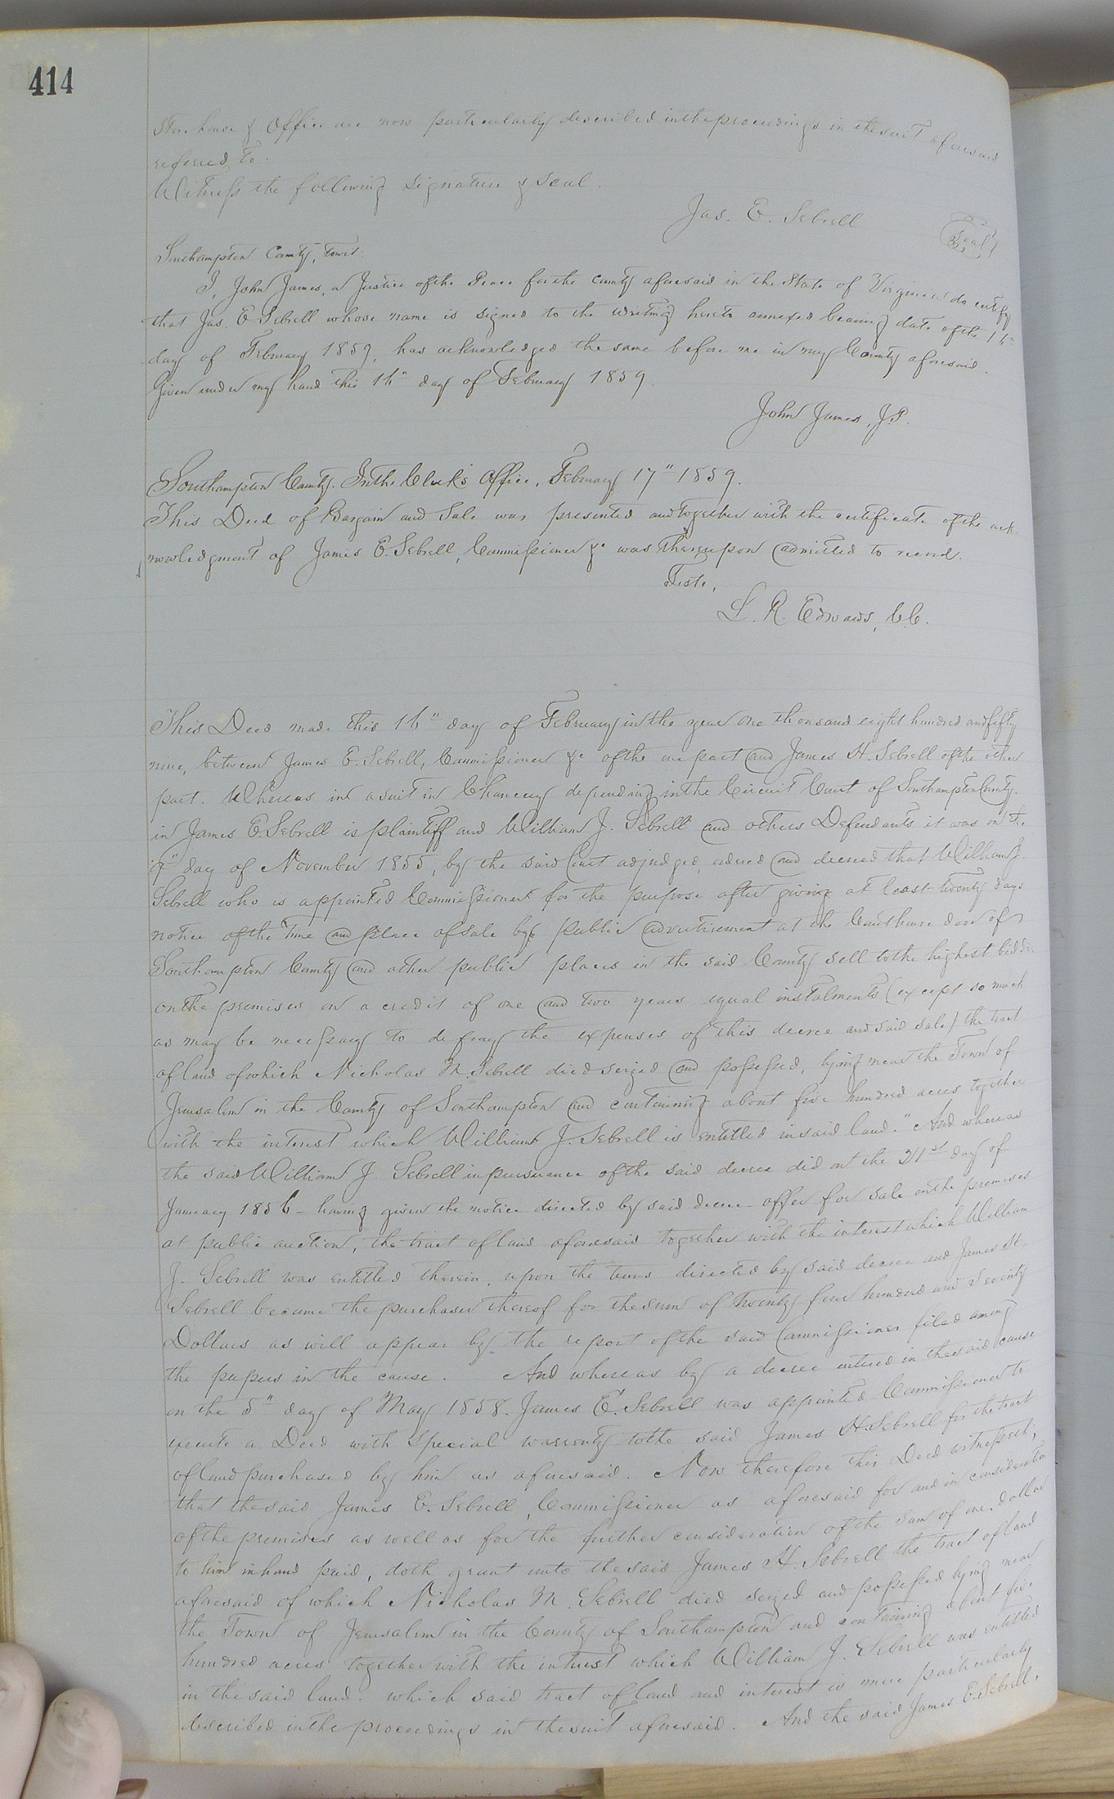 414
Storehouse & Office are now particularly described in the proceedings in the suit aforesaid
referred to.
Witness the following signature & seal.
Jas. E. Sebrell (Seal)
Southampton County, towit.
I, John James, a Justice of the Peace for the County aforesaid in the State of Virginia do certify
that Jas. E. Sebrell whose name is signed to the writing hereto annexed bearing date of the 16"
day of February 1859, has acknowledged the same before me in my County aforesaid.
Given under my hand this 16" day of February 1859.
John James, J.P.
Southampton County. In the Clerk's Office, February 17" 1859.
This Deed of Bargain and Sale was presented and together with the certificate of the ack-
nowledgment of James E. Sebrell, Commissioner &c was thereupon admitted to record.
Teste,
L. R. Edwards, C.C.
This Deed made this 16" day of February in the year one thousand eight hundred and fifty
nine, between James E. Sebrell, Commissioner &c of the one part and James H. Sebrell of the other
part. Whereas in a suit in Chancery depending in the Circuit Court of Southampton County.
in James E Sebrell is plaintiff and William J. Sebrell and others Defendants it was on the
day of November 1855, by the said Court adjudged, ordered and decreed that William J.
Sebrell who is appointed Commissioner for the purpose after giving at least twenty days
notice of the time and place of sale by public advertisement at the Courthouse door of
Southampton County and other public places in the said County sell to the highest bidder
on the premises on a credit of one and two years equal instalments (except so much
as may be necessary to defray the expenses of this decree and said sale) the tract
of land of which Nicholas M. Sebrell died seized and possessed, lying near the Town of
Jerusalem in the County of Southampton and containing about five hundred acres together
with the interest which William J. Sebrell is entitled in said land." And whereas
the said William J. Sebrell in persuance of the said decree did on the 21st day of
January 1856 - having given the notice directed by said decree - offer for sale on the premises
at public auction, the tract of land aforesaid together with the interest which William
J. Sebrell was entitled therein, upon the terms directed by said decree and James H.
Sebrell became the purchaser thereof for the sum of twenty four hundred and seventy
Dollars as will appear by the report of the said Commissioner filed among
the papers in the cause. And whereas by a decree entered in the said cause
on the 5" day of May 1858. James E. Sebrell was appointed Commissioner to
execute a Deed with Special warranty to the said James H. Sebrell for the tract
of land purchased by him as aforesaid. Now therefore this Deed witnesseth,
that the said James E. Sebrell, Commissioner as aforesaid for and in consideration
of the premises as well as for the further consideration of the sum of one dollar
to him in hand paid, doth grant unto the said James H. Sebrell the tract of land
aforesaid of which Nicholas M. Sebrell died seized and possessed lying near
the Town of Jerusalem in the County of Southampton and containing about five
hundred acres together with the interest which William J. Sebrell was entitled
in the said land. which said tract of land and interest is more particularly
described in the proceedings in the suit aforesaid. And the said James E. Sebrell,